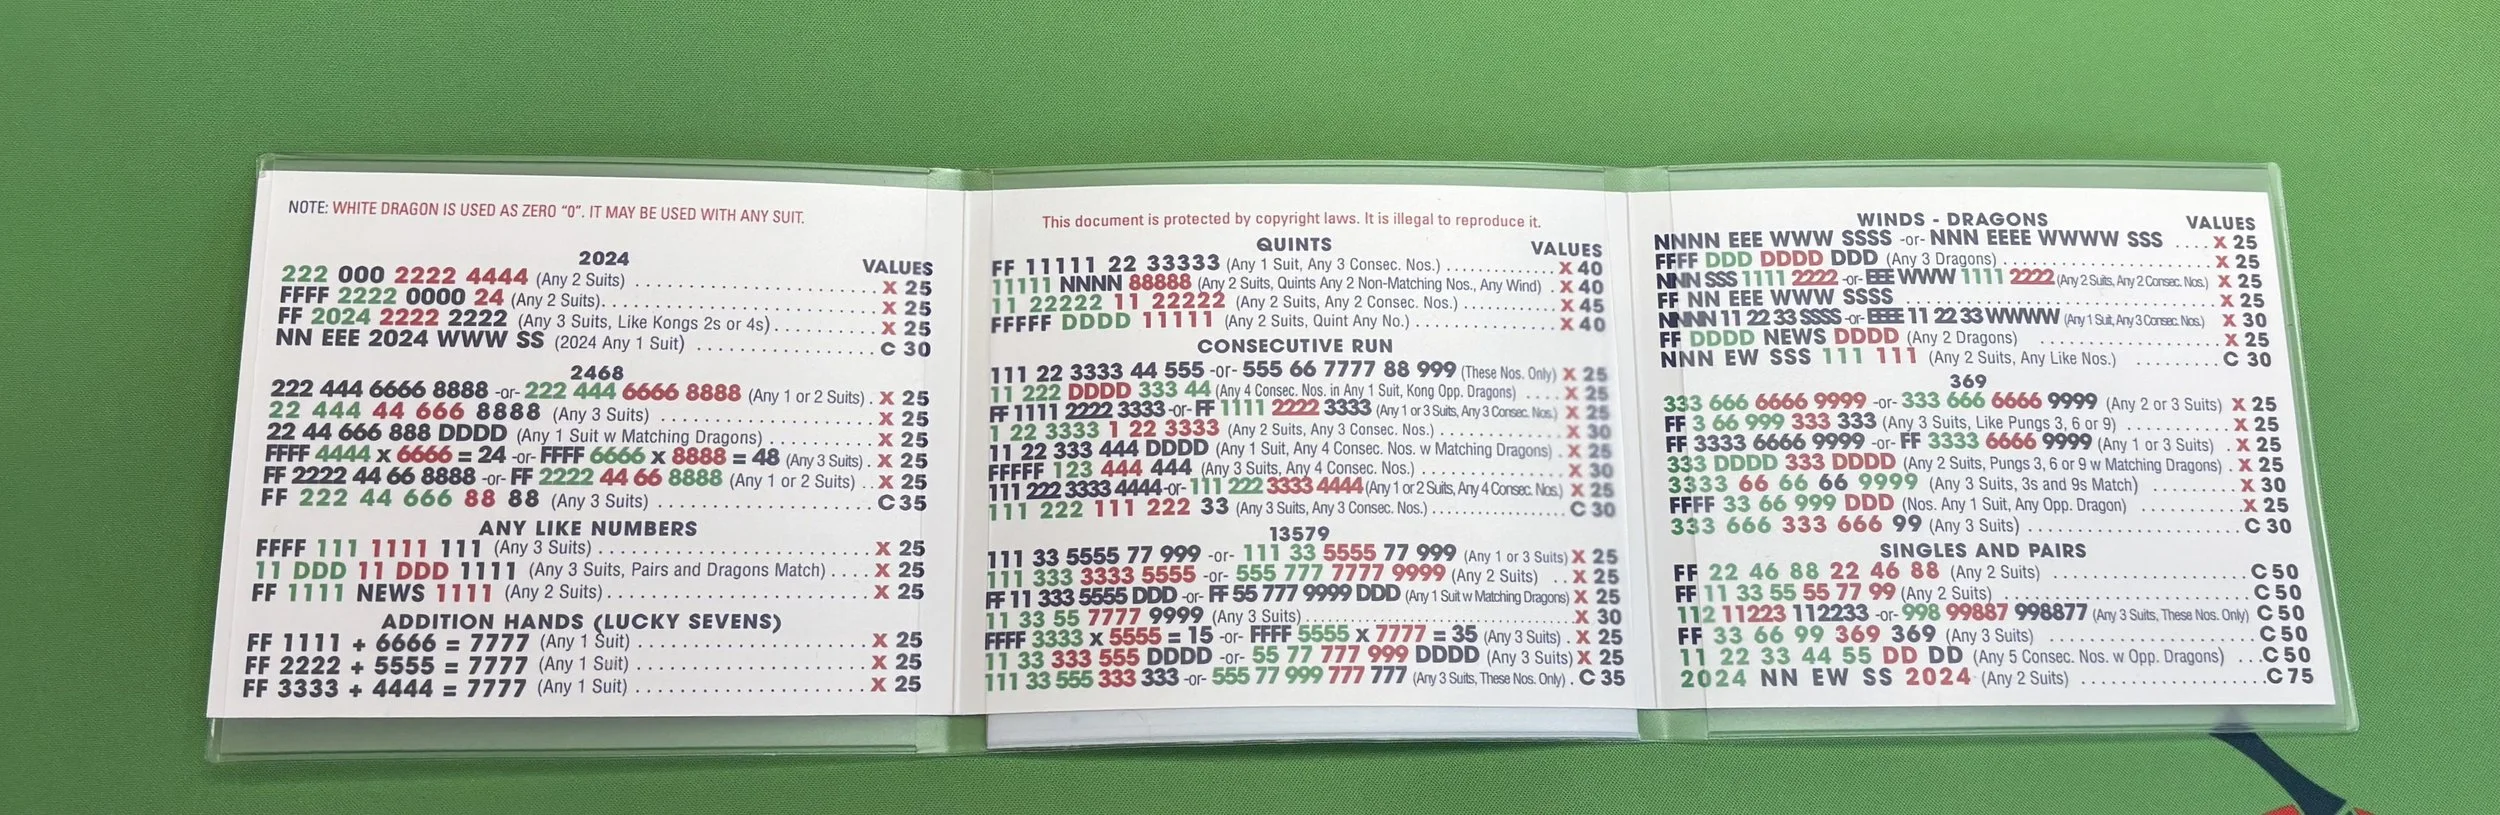 NOTE: WHITE DRAGON IS USED AS ZERO “0”. IT MAY BE USED WITH ANY SUIT.
2024
VALUES
222 000 2222 4444 (Any 2 Suits) X 25
FFFF 2222 0000 24 (Any 2 Suits) X 25
FF 2024 2222 2222 (Any 3 Suits, Like Kongs 2s or 4s) X 25
NN EEE 2024 WWW SS (2024 Any 1 Suit) C 30
2468
222 444 6666 8888 -or- 222 444 6666 8888 (Any 1 or 2 Suits) X 25
22 444 44 666 8888 (Any 3 Suits) X 25
22 44 666 888 DDDD (Any 1 Suit w Matching Dragons) X 25
FFFF 4444 x 6666 = 24 -or- FFFF 6666 x 8888 = 48 (Any 3 Suits) X 25
FF 2222 44 66 8888 -or- FF 2222 44 66 8888 (Any 1 or 2 Suits) X 25
FF 222 44 666 88 88 (Any 3 Suits) C 35
ANY LIKE NUMBERS
FFFF 111 1111 111 (Any 3 Suits) X 25
11 DDD 11 DDD 1111 (Any 3 Suits, Pairs and Dragons Match) X 25
FF 1111 NEWS 1111 (Any 2 Suits) X 25
ADDITION HANDS (LUCKY SEVENS)
FF 1111 + 6666 = 7777 (Any 1 Suit) X 25
FF 2222 + 5555 = 7777 (Any 1 Suit) X 25
FF 3333 + 4444 = 7777 (Any 1 Suit) X 25
This document is protected by copyright laws. It is illegal to reproduce it.
QUINTS
VALUES
FF 11111 22 33333 (Any 1 Suit, Any 3 Consec. Nos.) X 40
11111 NNNN 88888 (Any 2 Suits, Quints Any 2 Non-Matching Nos., Any Wind) X 40
11 22222 11 22222 (Any 2 Suits, Any 2 Consec. Nos.) X 45
FFFFF DDDD 11111 (Any 2 Suits, Quint Any No.) X 40
CONSECUTIVE RUN
111 22 3333 44 555 -or- 555 66 7777 88 999 (These Nos. Only) X 25
11 222 DDDD 333 44 (Any 4 Consec. Nos. in Any 1 Suit, Kong Opp. Dragons) X 25
FF 1111 2222 3333 -or- FF 1111 2222 3333 (Any 1 or 3 Suits, Any 3 Consec. Nos.) X 25
1 22 3333 1 22 3333 (Any 2 Suits, Any 3 Consec. Nos.) X 30
11 22 333 444 DDDD (Any 1 Suit, Any 4 Consec. Nos. w Matching Dragons) X 25
FFFFF 123 444 444 (Any 3 Suits, Any 4 Consec. Nos.) X 30
111 222 3333 4444 -or- 111 222 3333 4444 (Any 1 or 2 Suits, Any 4 Consec. Nos.) X 25
111 222 111 222 33 (Any 3 Suits, Any 3 Consec. Nos.) C 30
13579
111 33 5555 77 999 -or- 111 33 5555 77 999 (Any 1 or 3 Suits) X 25
111 333 3333 5555 -or- 555 777 7777 9999 (Any 2 Suits) X 25
FF 11 333 5555 DDD -or- FF 55 777 9999 DDD (Any 1 Suit w Matching Dragons) X 25
11 33 55 7777 9999 (Any 3 Suits) X 30
FFFF 3333 x 5555 = 15 -or- FFFF 5555 x 7777 = 35 (Any 3 Suits) X 25
11 33 333 555 DDDD -or- 55 77 777 999 DDDD (Any 3 Suits) X 25
111 33 555 333 333 -or- 555 77 999 777 777 (Any 3 Suits, These Nos. Only) C 35
WINDS - DRAGONS
VALUES
NNNN EEE WWW SSSS -or- NNN EEEE WWWW SSS X 25
FFFF DDD DDDD DDD (Any 3 Dragons) X 25
NNN SSS 1111 2222 -or- EEE WWW 1111 2222 (Any 2 Suits, Any 2 Consec. Nos.) X 25
FF NN EEE WWW SSSS X 25
NNNN 11 22 33 SSSS -or- EEEE 11 22 33 WWWW (Any 1 Suit, Any 3 Consec. Nos.) X 30
FF DDDD NEWS DDDD (Any 2 Dragons) X 25
NNN EW SSS 111 111 (Any 2 Suits, Any Like Nos.) C 30
369
333 666 6666 9999 -or- 333 666 6666 9999 (Any 2 or 3 Suits) X 25
FF 3 66 999 333 333 (Any 3 Suits, Like Pungs 3, 6 or 9) X 25
FF 3333 6666 9999 -or- FF 3333 6666 9999 (Any 1 or 3 Suits) X 25
333 DDDD 333 DDDD (Any 2 Suits, Pungs 3, 6 or 9 w Matching Dragons) X 25
3333 66 66 66 9999 (Any 3 Suits, 3s and 9s Match) X 30
FFFF 33 66 999 DDD (Nos. Any 1 Suit, Any Opp. Dragon) X 25
333 666 333 666 99 (Any 3 Suits) C 30
SINGLES AND PAIRS
FF 22 46 88 22 46 88 (Any 2 Suits) C 50
FF 11 33 55 55 77 99 (Any 2 Suits) C 50
112 11223 112233 -or- 998 99887 998877 (Any 3 Suits, These Nos. Only) C 50
FF 33 66 99 369 369 (Any 3 Suits) C 50
11 22 33 44 55 DD DD (Any 5 Consec. Nos. w Opp. Dragons) C 50
2024 NN EW SS 2024 (Any 2 Suits) C 75